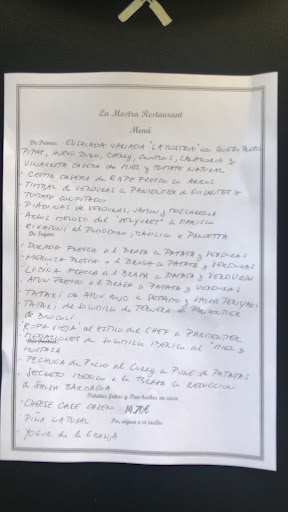 La Mostra Restaurant
Menú
De Primer: ENSALADA VARIADA "LA MOSTRA" CON QUESO FRESCO
PIPAS, HUEVO DURO, CHERRY, ZANAHORIA Y
VINAGRETA CASERA DE MIEL Y TOMATE NATURAL
- CREMA CASERA DE RAPE FRESCO CON ARROZ
- TIMBAL DE VERDURAS CON PARMENTIER DE GUISANTES Y
TOMATE CONFITADO
- PIADINAS DE VERDURAS, JAMON Y MOZZARELLA
- ARROZ MELOSO DEL MARISCO
- RIGATONI AL POMODORO, BASILICO Y PANCETTA
De Segon:
- DORADA FRESCA A LA BRASA CON PATATA Y VERDURAS
- MERLUZA FRESCA A LA BRASA CON PATATA Y VERDURAS
- LUBINA FRESCA A LA BRASA CON PATATA Y VERDURAS
- ATUN FRESCO A LA BRASA CON PATATA Y VERDURAS
- TATAKI DE ATUN ROJO CON Y SALSA TERIYAKI
- TATAKI DE SOLOMILLO DE TERNERA CON PARMENTIER
DE BROCOLI
- ROPA VIEJA AL ESTILO DEL CHEF CON PARMENTIER
DE SOLOMILLO IBERICO AL "MIEL Y
MOSTAZA
- PECHUGA DE POLLO AL CURRY CON PURE DE PATATAS
- SECRETO IBERICO A LA BRASA CON REDUCCION
DE SALSA BARBACOA
Patatas fritas y Pan hechos en casa
- CHEESE CAKE CASERO 14,70€
- PIÑA NATURAL Pa, aigua o vi inclòs
- YOGUR DE LA GRANJA